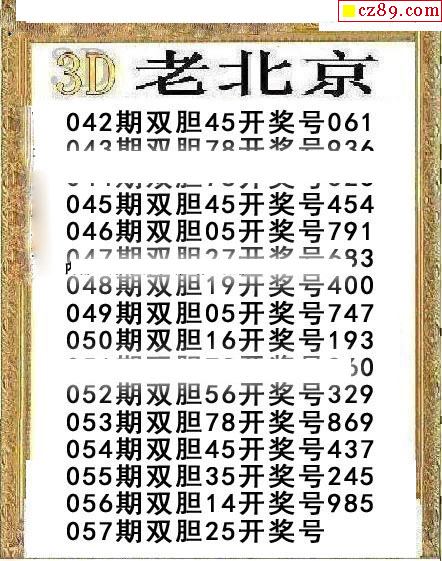 cz89.com
3D 老北京
042期双胆45开奖号061
043期双胆78开奖号936
045期双胆45开奖号454
046期双胆05开奖号791
047期双胆27开奖号683
048期双胆19开奖号400
049期双胆05开奖号747
050期双胆16开奖号193
60
052期双胆56开奖号329
053期双胆78开奖号869
054期双胆45开奖号437
055期双胆35开奖号245
056期双胆14开奖号985
057期双胆25开奖号